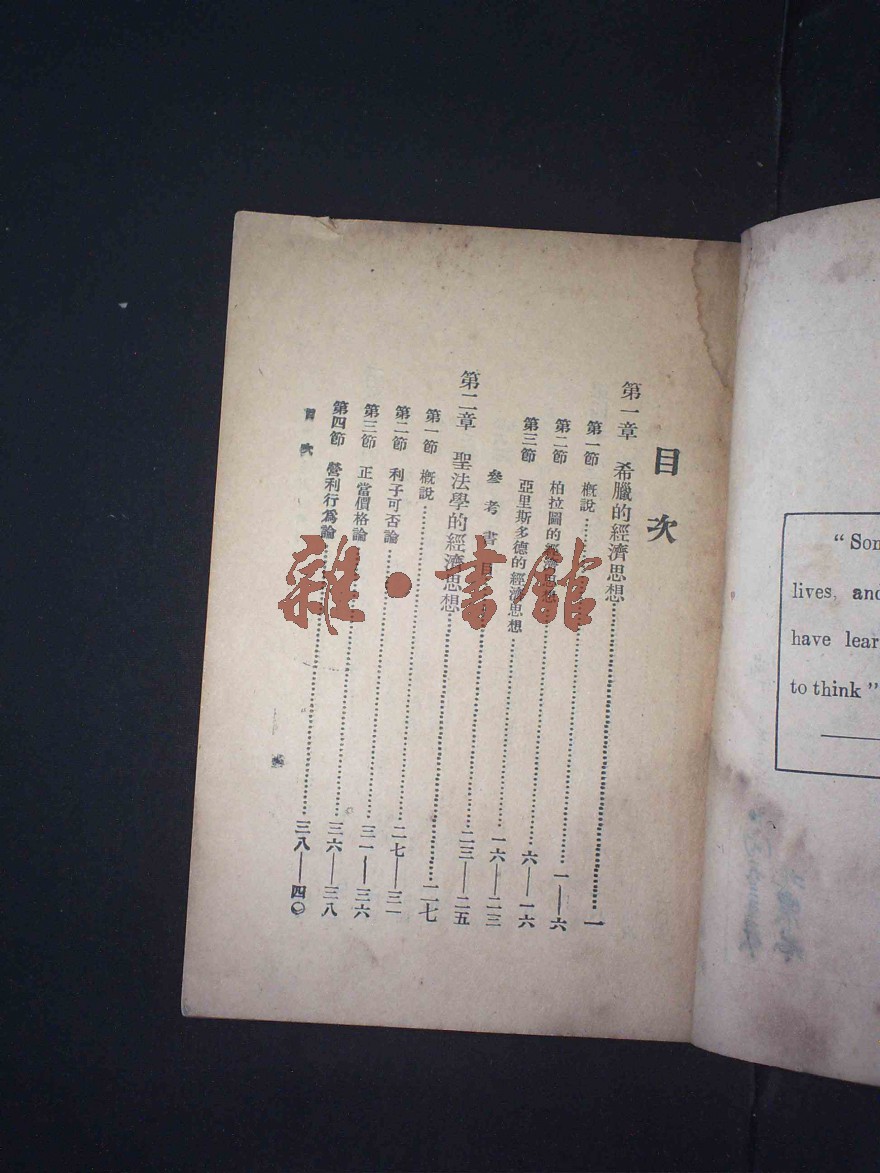 “ Son
lives, and
have lear
to think ”
目次
第一章 希臘的經濟思想……一
第一節 概說……一—六
第二節 柏拉圖的經濟思想……六—一六
第三節 亞里斯多德的經濟思想……一六—二三
參考書目……二三—二五
第二章 聖法學的經濟思想……二七
第一節 概說……二七—三一
第二節 利子可否論……三一—三六
第三節 正當價格論……三六—三八
第四節 營利行爲論……三八—四〇
目次
雜·書館